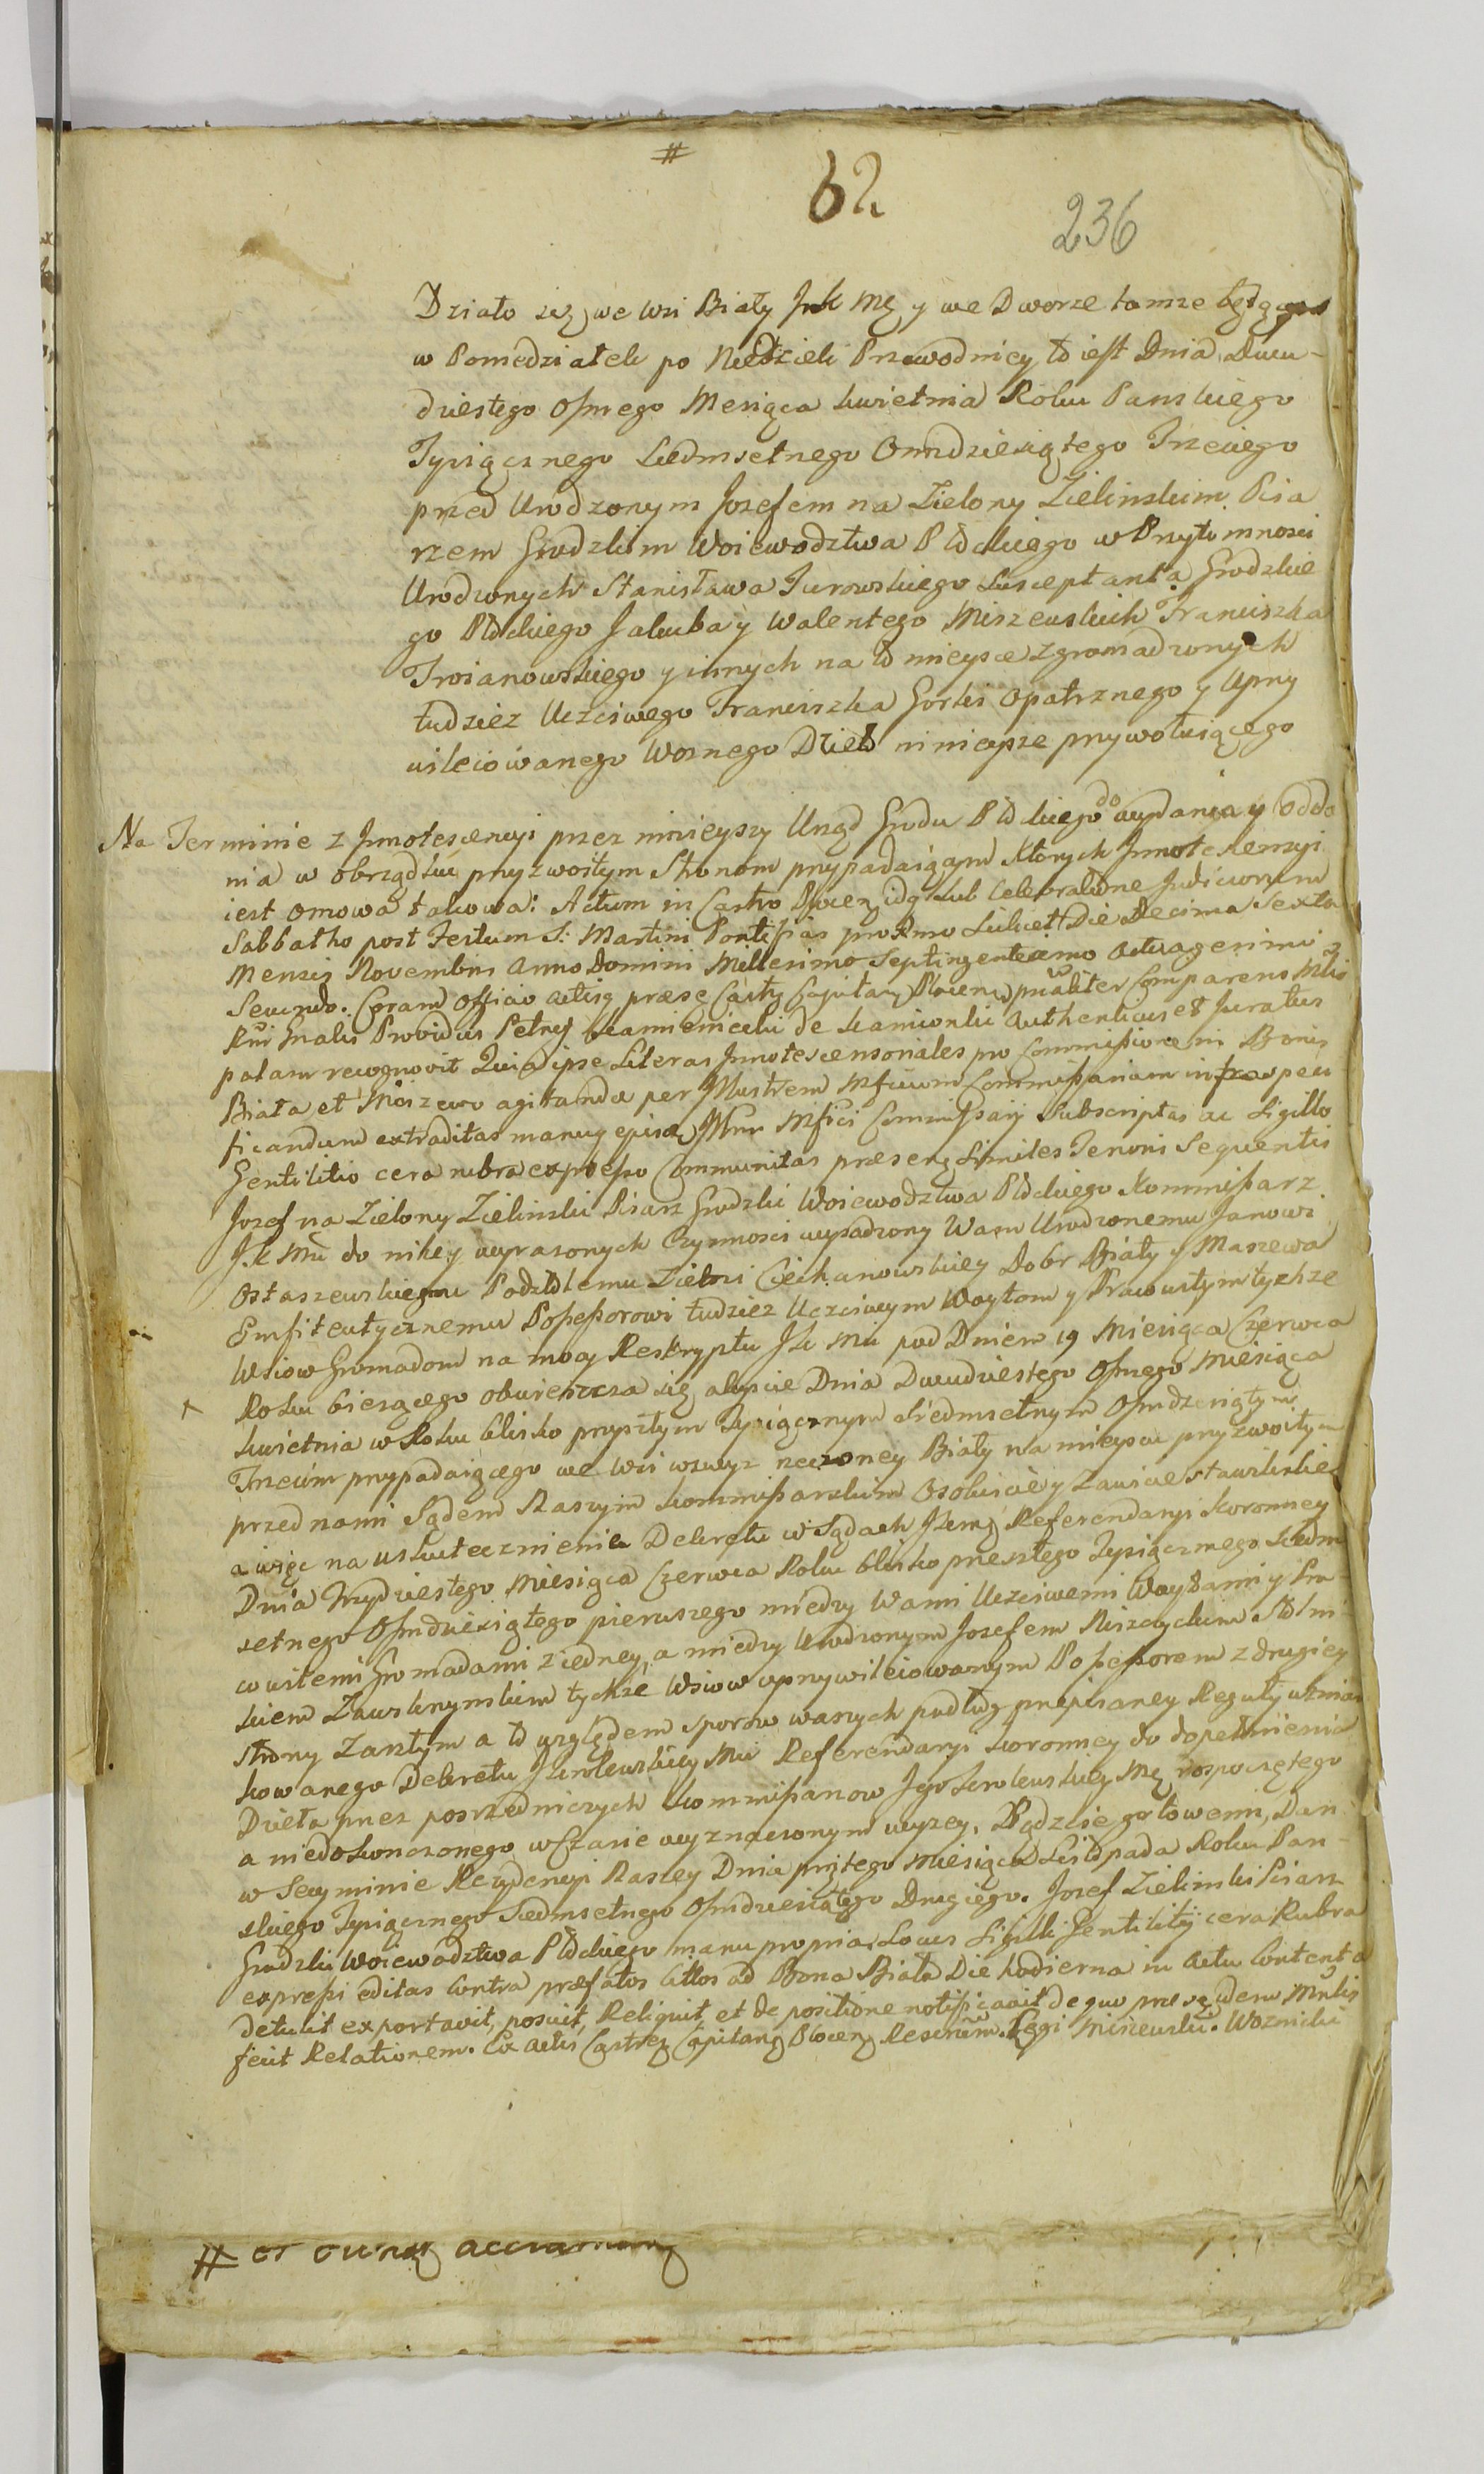 #
62
236
Działo się we wsi Biały JKMę y we Dworze tamze będącym
w Poniedziałek po Niedzieli Przewodniey to iest Dnia Dwu-
dziestego Osmego Mesiąca kwietnia Roku Panskiego
Tysiącznego Siedmsetnego Osmdziesiątego Trzeciego
przed Urodzonym Jozefem na Zielony Zielinskim Pisa
rzem Grodzkim Woiewodztwa Płockiego w Przytomnosci
Urodzonych Stanisława Turowskiego Susceptanta Grodzkie
go Płockiego Jakuba y Walentego Miszewskich Franciszka
Troianowskiego y innych na to mieysce zgromadzonych
tudziez Uczciwego Franciszka Gorki Opatrznego y Uprzy
wileiowanego Woznego Dzieło ninieysze przywołuiącego
Na Terminie z Jnnotescencyi przez ninieyszy Urząd Grodu Płockiego do wydania y Odda
nia w obrządku przyzwoitym Stronom przypadaiącym Ktorych Jnnotescencyi
iest Omowa takowa: Actum in Castro Plocen idq sub Celebratione Judiciorum
Sabbatho post Festum S: Martini Pontificis proximo Scilicet Die Decima Sexta
Mensis Novembris Anno Domini Millesimo Septingentesimo Octuagesimo
Secundo. Coram Officio Actisq præse Castr Capitan Plocen pnaliter Comparens Mlis
Rni Gnalis Providus Petrus Kamienicki de Kamionki Authenticus et Juratus
palam recognovit Quia ipse Literas Jnnotescensoriales pro Commissione in Bonis
Biała et Miszewo agitanda per Jllustrem Mficum Commissarium infra speci
ficandum extraditas manuq ejusd Jllmi Mfici Commissarij Subscriptas ac Sigillo
Gentilitio cera rubra expresso Communitas præsen Similes Tenoris Sequentis
Jozef na Zielony Zielinski Pisarz Grodzki Woiewodztwa Płockiego Kommissarz
J.K Mci do niżey wyrazonych Czynnosci wysadzony Wam Urodzonemu Janowi
Ostaszewskiemu Podstolemu Ziemi Ciechanowskiey Dobr Biały y Maszewa
Emfiteutycznemu Possessorowi tudziez Uczciwym Woytom y Pracowitym tychze
Wsiow Gromadom na mocy Reskryptu JK Mci pod Dniem 19 Miesiąca Czerwca
Roku biezącego obwieszcza się abyscie Dnia Dwudziestego Osmego Miesiąca
kwietnia w Roku blisko przyszłym Tysiącznym Siedmsetnym Osmdziesiątym
Trzecim przypadaiącego we wsi wzwyz rzeczoney Biały na mieyscu przyzwoitym
przed nami Sądem Naszym kommissarskim Osobiscie y Zawicie stawili się
a więc na uskutecznienie Dekretu w Sądach JKMę Referendaryi koronney
Dnia Trzydziestego Miesiąca Czerwca Roku blisko przeszłego Tysiącznego Siedm
setnego Osmdziesiątego pierwszego między Wami Uczciwemi Woytami y Pra
cowitemi Gromadami z iedney, a między Urodzonym Jozefem Niszczyckim Stolni
kiem Zawskrzynskim tychze Wsiow uprzywileiowanym Possessorem z drugiey
strony zaszłym a to względem sporow waszych podług przepisaney Reguły
kowanego Dekretu JKrolewskiey Mci Referendaryi koronney do dopełnienia
Dzieła przez posrzedniczych Kommissarzow Jego Krolewskiey Mę rospoczętego
a niedokonczonego w Czasie wyznaczonym wyzey. Bądzcie gotowemi, Dan
w Secyminie Rezydencyi Naszey Dnia piątego Miesiąca Listopada Roku Pan-
skiego Tysiącznego Siedmsetnego Osmdziesiątego Drugiego. Jozef Zielinski Pisarz
Grodzki Woiewodztwa Płockiego manu propria. Locus Sigilli Gentilitij cera Rubra
expressi editas contra præfatos Cittos ad Bona Biała Die hodierna in Actu Contenta
detulit exportavit, posuit, Reliquit et de positione notificavit de quo præse idem Mnlis
fecit Relationem. Ex Actis Castren Capitan Plocen Rescriptum. Legi Miszewski. Woznicki